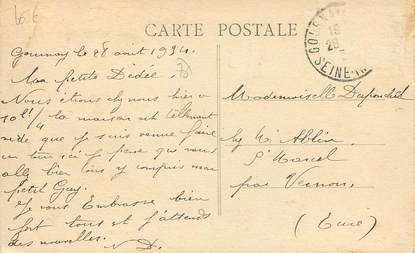 CARTE POSTALE
Gournay le 28 août 1934.
Ma petite Dédée.
Nous étions chez nous hier à
10h 1/4 la maison est tellement
vide que je suis venue faire
un tour ici je pense que vous
allez bien tous y compris mon
petit Guy.
Je vous Embrasse bien
fort tous et j'attends
des nouvelles.
Mademoiselle
chez Mr
St Marcel
par Vernon.
(Eure)
SEINE